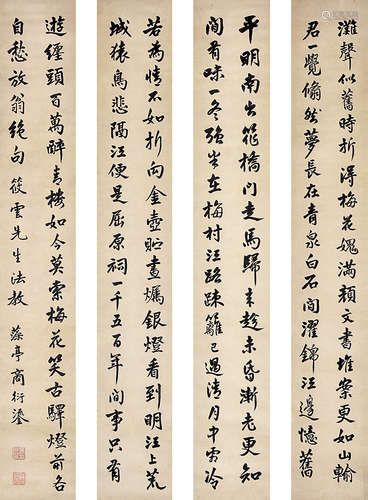 灘聲似舊時折得梅花媿滿顏文書堆案更如山輸
君一覺翛然夢長在青泉白石間濯錦江邊憶舊
平明南出笮橋門走馬歸來趁未昏漸老更知
閒有味一冬強半在梅村江路疎籬已過清月中霜冷
若為情不如折向金壺貯畫燭銀燈看到明江上荒
城猿鳥悲隔江便是屈原祠一千五百年間事只有
遊纏頭百萬醉青樓如今莫索梅花笑古驛燈前各
自愁放翁絕句 筱雲先生法教 藻亭商衍瀛